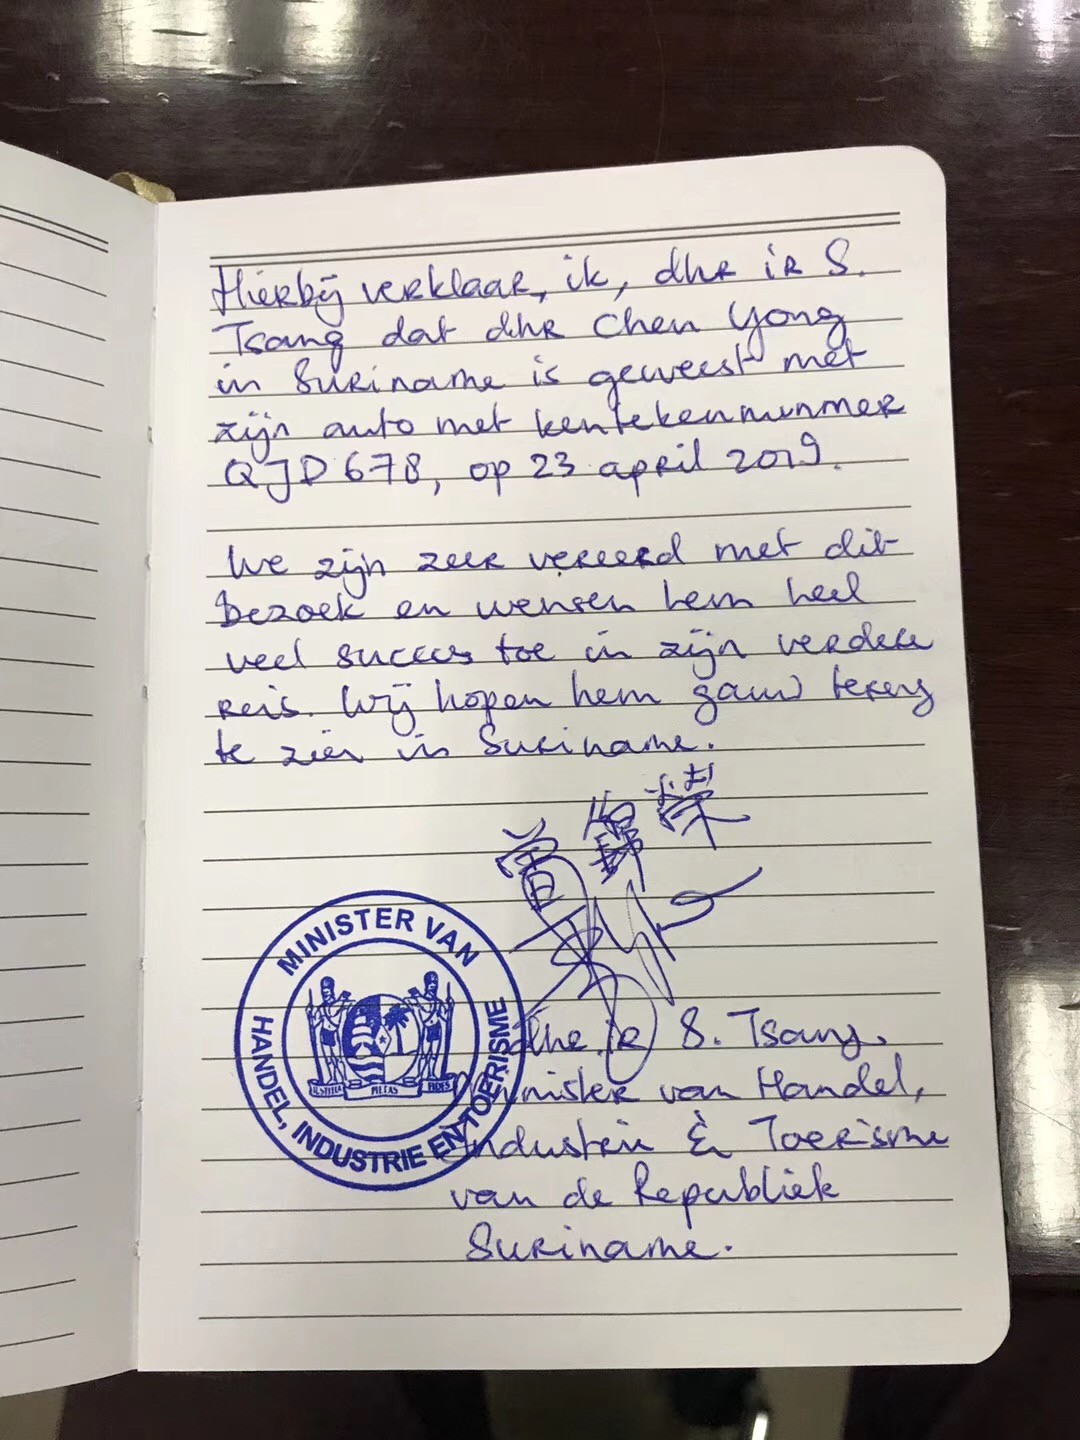 Hierbij verklaar, ik, dhr ir S.
Tsang dat dhr Chen Yong
in Suriname is geweest met
zijn auto met kentekennummer
QJD 678, op 23 april 2019.
We zijn zeer vereerd met dit
bezoek en wensen hem heel
veel succes toe in zijn verdere
reis. Wij hopen hem gauw terug
te zien in Suriname.
曾錦榮
MINISTER VAN
HANDEL, INDUSTRIE EN TOERISME
JUSTITIA PIETAS FIDES
dhr ir S. Tsang,
Minister van Handel,
Industrie & Toerisme
van de Republiek
Suriname.